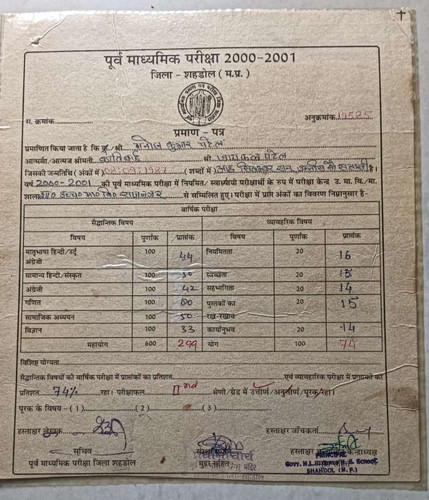 पूर्व माध्यमिक परीक्षा 2000-2001
जिला - शहडोल ( म.प्र. )
स. क्रमांक
अनुक्रमांक 17525
प्रमाण - पत्र
प्रमाणित किया जाता है कि कु./श्री मनोज कुमार पटेल
आत्मजा/आत्मज श्रीमती श्री पटेल
जिसकी जन्मतिथि ( अंकों में ) ( शब्दों में
वर्ष 2000-2001 की पूर्व माध्यमिक परीक्षा में नियमित/ स्वाध्यायी परीक्षार्थी के रूप में परीक्षा केन्द्र उ. मा. वि./मा.
शाला से सम्मिलित हुए। परीक्षा में प्राप्त अंकों का विवरण निम्नानुसार है-
वार्षिक परीक्षा
सैद्धान्तिक विषय व्यावहारिक विषय
विषय पूर्णांक प्राप्तांक विषय पूर्णांक प्राप्तांक
मातृभाषा हिन्दी/उर्दू 100 44 नियमितता 20 16
अंग्रेजी
सामान्य हिन्दी/संस्कृत 100 50 स्वच्छता 20 15
अंग्रेजी 100 42 सहभागिता 20 14
गणित 100 80 पुस्तकों का 20 15
सामाजिक अध्ययन 100 50 रख-रखाव
विज्ञान 100 33 कार्यानुभव 20 14
महायोग 600 299 योग 100 74
विशिष्ट योग्यता
सैद्धान्तिक विषयों की वार्षिक परीक्षा में प्राप्तांकों का प्रतिशत एवं व्यावहारिक परीक्षा में प्राप्तांकों का
प्रतिशत 74% रहा। परीक्षाफल II श्रेणी/ग्रेड में उत्तीर्ण/अनुत्तीर्ण/पूरक रहा।
पूरक के विषय - (1) (2) (3)
हस्ताक्षर लेखक हस्ताक्षर जाँचकर्ता
सचिव हस्ताक्षर केन्द्राध्यक्ष
पूर्व माध्यमिक परीक्षा जिला शहडोल मुद्रा सहित
PRINCIPAL
SCHOOL
SHAHDOL (M.P.)